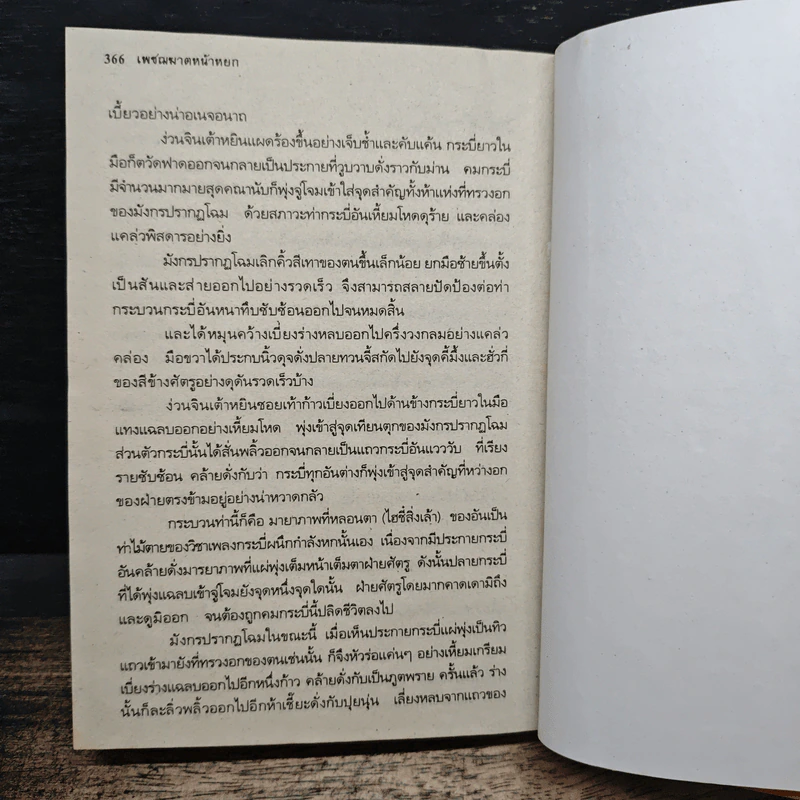 366 เพชฌฆาตหน้าหยก
เบี้ยวอย่างน่าอเนจอนาถ
ง่วนจินเต้าหยินแผดร้องขึ้นอย่างเจ็บช้ำและคับแค้น กระบี่ยาวใน
มือก็ตวัดฟาดออกจนกลายเป็นประกายที่วูบวาบดั่งราวกับม่าน คมกระบี่
มีจำนวนมากมายสุดคณานับก็พุ่งจู่โจมเข้าใส่จุดสำคัญทั้งห้าแห่งที่ทรวงอก
ของมังกรปรากฏโฉม ด้วยสภาวะท่ากระบี่อันเหี้ยมโหดดุร้าย และคล่อง
แคล่วพิสดารอย่างยิ่ง
มังกรปรากฏโฉมเลิกคิ้วสีเทาของตนขึ้นเล็กน้อย ยกมือซ้ายขึ้นตั้ง
เป็นสันและส่ายออกไปอย่างรวดเร็ว จึงสามารถสลายปัดป้องต่อท่า
กระบวนกระบี่อันหนาทึบซับซ้อนออกไปจนหมดสิ้น
และได้หมุนคว้างเบี่ยงร่างหลบออกไปครึ่งวงกลมอย่างแคล่ว
คล่อง มือขวาได้ประกบนิ้วดุจดั่งปลายทวนจี้สกัดไปยังจุดคี้มึ้งและฮั่วกี่
ของสีข้างศัตรูอย่างดุดันรวดเร็วบ้าง
ง่วนจินเต้าหยินซอยเท้าก้าวเบี่ยงออกไปด้านข้างกระบี่ยาวในมือ
แทงแฉลบออกอย่างเหี้ยมโหด พุ่งเข้าสู่จุดเทียนตุกของมังกรปรากฏโฉม
ส่วนตัวกระบี่นั้นได้สั่นพลิ้วออกจนกลายเป็นแถวกระบี่อันแวววับ ที่เรียง
รายซับซ้อน คล้ายดั่งกับว่า กระบี่ทุกอันต่างก็พุ่งเข้าสู่จุดสำคัญที่หว่างอก
ของฝ่ายตรงข้ามอยู่อย่างน่าหวาดกลัว
กระบวนท่านี้ก็คือ มายาภาพที่หลอนตา (ไฮชี่สิ่งเล้า) ของอันเป็น
ท่าไม้ตายของวิชาเพลงกระบี่ผนึกกำลังหกนั้นเอง เนื่องจากมีประกายกระบี่
อันคล้ายดั่งมารยาภาพที่แผ่พุ่งเต็มหน้าเต็มตาฝ่ายศัตรู ดังนั้นปลายกระบี่
ที่ได้พุ่งแฉลบเข้าจู่โจมยังจุดหนึ่งจุดใดนั้น ฝ่ายศัตรูโดยมากคาดเดามิถึง
และดูมิออก จนต้องถูกคมกระบี่นี้ปลิดชีวิตลงไป
มังกรปรากฏโฉมในขณะนี้ เมื่อเห็นประกายกระบี่แผ่พุ่งเป็นทิว
แถวเข้ามายังที่ทรวงอกของตนเช่นนั้น ก็จึงหัวร่อแค่นๆ อย่างเหี้ยมเกรียม
เบี่ยงร่างแฉลบออกไปอีกหนึ่งก้าว คล้ายดั่งกับเป็นภูตพราย ครั้นแล้ว ร่าง
นั้นก็ละลิ่วพลิ้วออกไปอีกห้าเชี๊ยะดั่งกับปุยนุ่น เลี่ยงหลบจากแถวของ